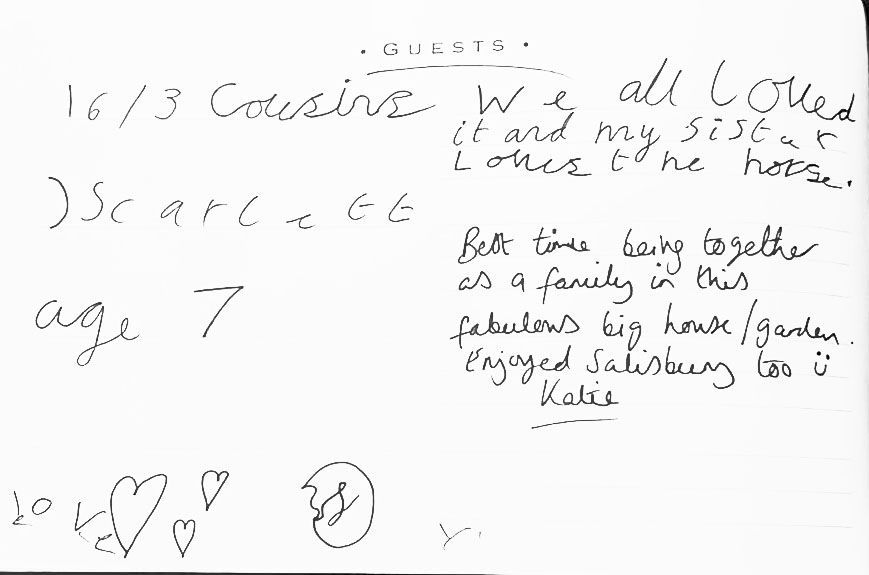 • GUESTS •
16/3 Cousins
)Scarlett
age 7
We all loved
it and my sister
Loves the horse.
Best time being together
as a family in this
fabulous big house/garden.
Enjoyed Salisbury too ü
Katie
love